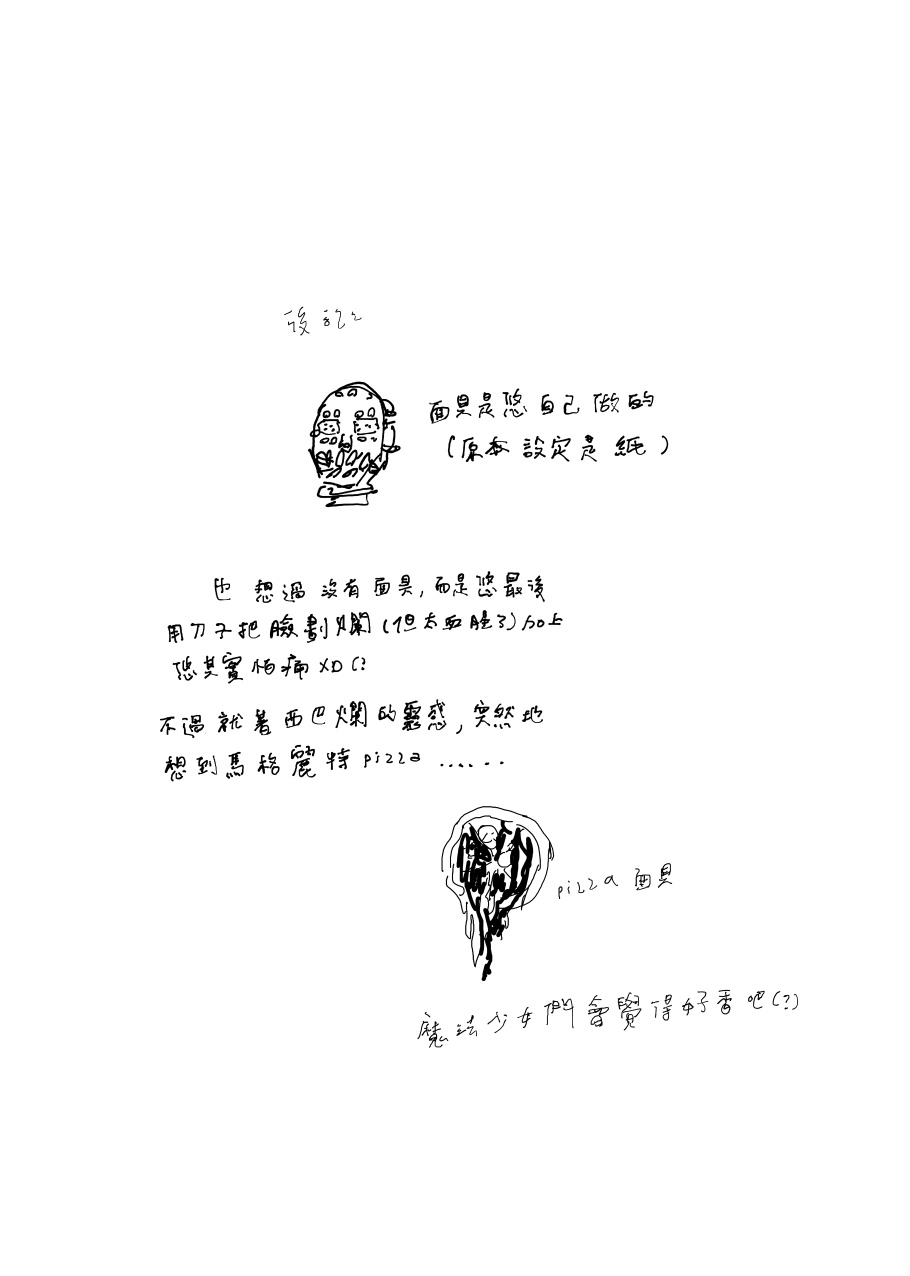 後記
面具是悠自己做的
(原本設定是紙)
也想過沒有面具,而是悠最後
用刀子把臉劃爛(但太血腥了)加上
悠其實怕痛XD(?
不過就著西巴爛的靈感,突然地
想到馬格麗特pizza......
pizza面具
魔法少女們會覺得好香吧(?)